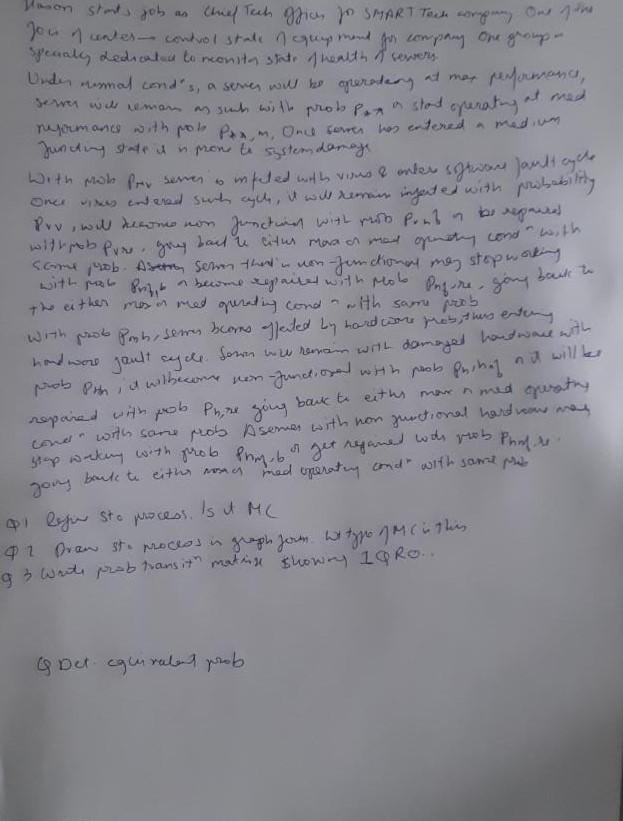 Mason starts job as Chief Tech Officer for SMART Tech company One of the
Jobs of center control state of equipment for company One group
Specially dedicated to monitor state of health of servers
Under normal cond's, a server will be operating at max performance,
server will remain as such with prob or start operating at med
performance with prob Once server has entered a medium
functing state it is prone to system damage
With prob Pmv server is infected with virus & enters software fault cycle
Once virus entered such cycle, it will remain infected with probability
Pvv, will become non functional with prob or be repaired
with prob Pv,re, going back to either max or med operating cond^n with
same prob. Server that is non-functional may stop working
with prob or become repaired with prob Pnf,re, going back to
the either max or med operating cond^n with same prob
With prob Pmh, server becoms affected by hardware prob, thus entering
hardware fault cycle. Server will remain with damaged hardware with
prob Phh, it will become non-functional with prob it will be
repaired with prob Ph,re going back to either max or med operating
cond^n with same prob A server with non functional hardware may
stop working with prob Phnf,b or get repaired with prob Phnf,re.
going back to either max or med operating cond^n with same prob
Q1 Sto process. Is it MC
Q2 Draw sto process in graph form. Wt type of MC is this
Q3 Write prob transit^n matrix showing IQRO..
Q Det. equivalent prob